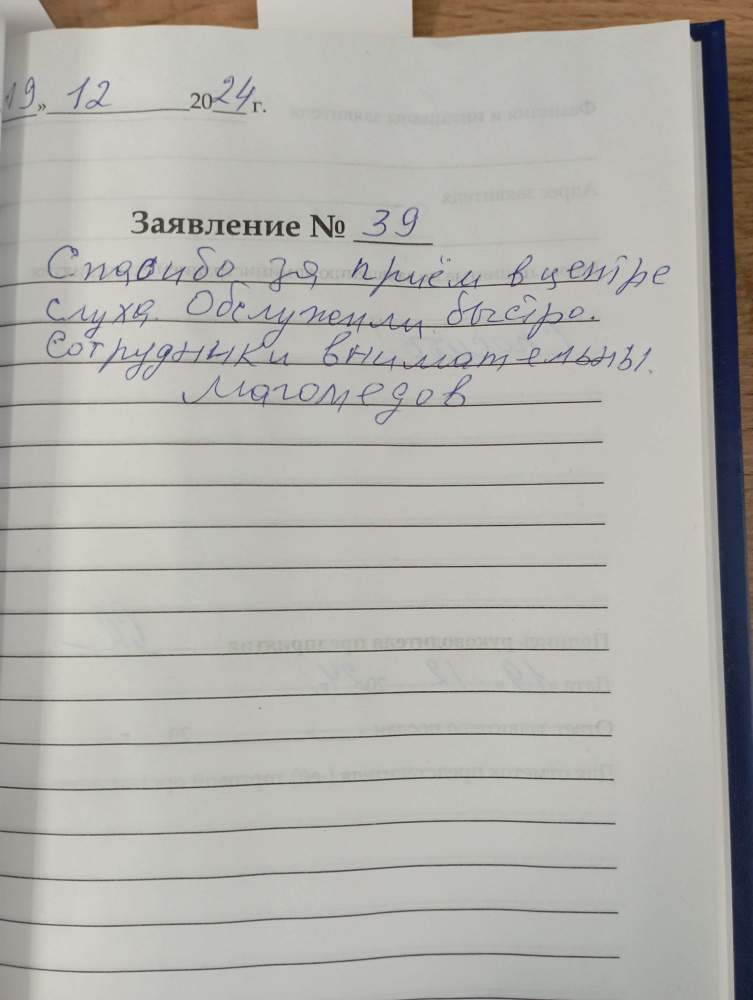 19» 12 2024 г.
Заявление № 39
Спасибо за приём в центре
слуха. Обслужили быстро.
Сотрудники внимательны.
Магомедов